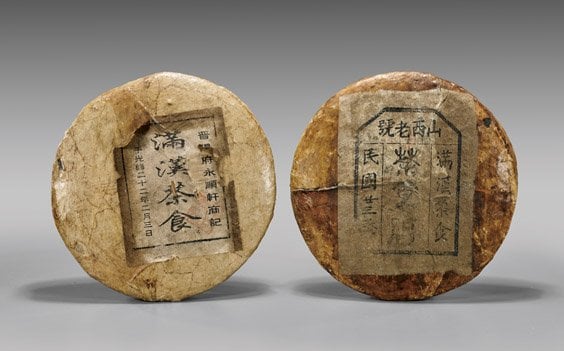 府永順軒商記
滿漢茶食
光緒二十二年二月三日
山西老號
滿漢茶食
榮
民國廿三